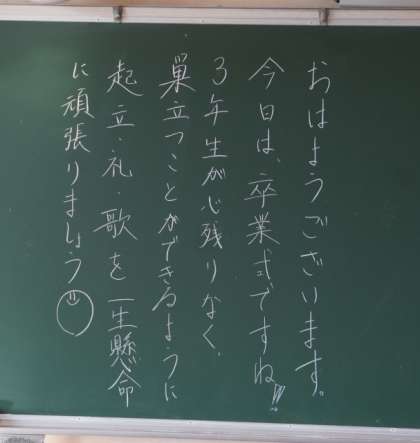 おはようございます。
今日は、卒業式ですね!!
3年生が心残りなく、
巣立つことができるように
起立・礼・歌を一生懸命
に頑張りましょう